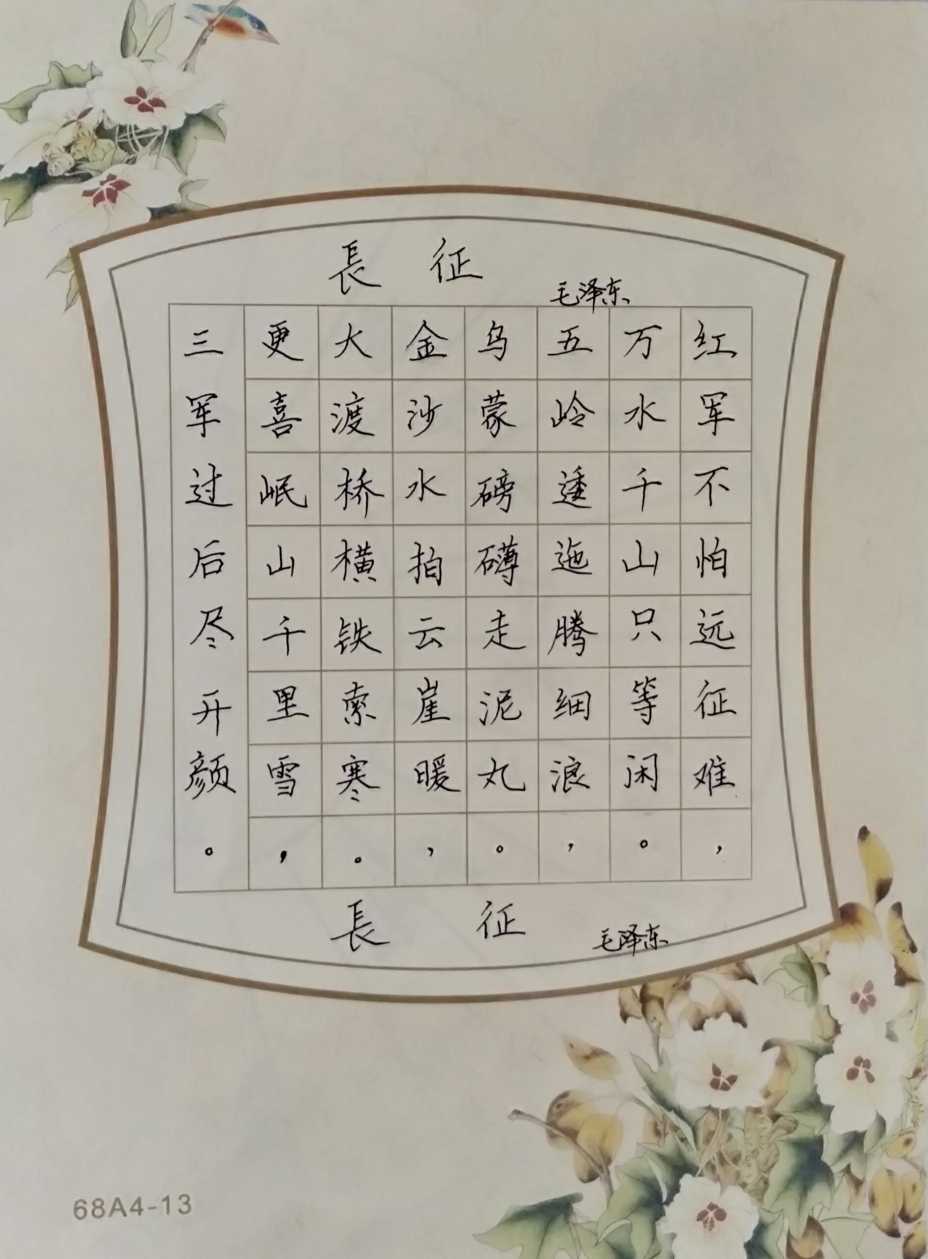 長征
毛泽东
红军不怕远征难，
万水千山只等闲。
五岭逶迤腾细浪，
乌蒙磅礴走泥丸。
金沙水拍云崖暖，
大渡桥横铁索寒。
更喜岷山千里雪，
三军过后尽开颜。
長征
毛泽东
68A4-13